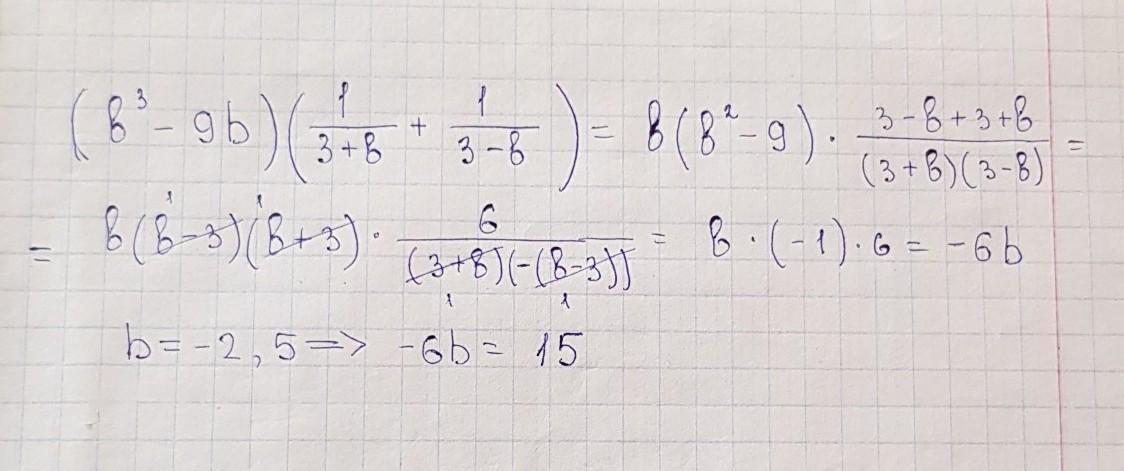 (b³ - 9b)(1/(3+b) + 1/(3-b)) = b(b² - 9) · (3-b+3+b)/((3+b)(3-b)) =
= b(b-3)(b+3) · 6/((3+b)(-(b-3))) = b · (-1) · 6 = -6b
b = -2,5 => -6b = 15